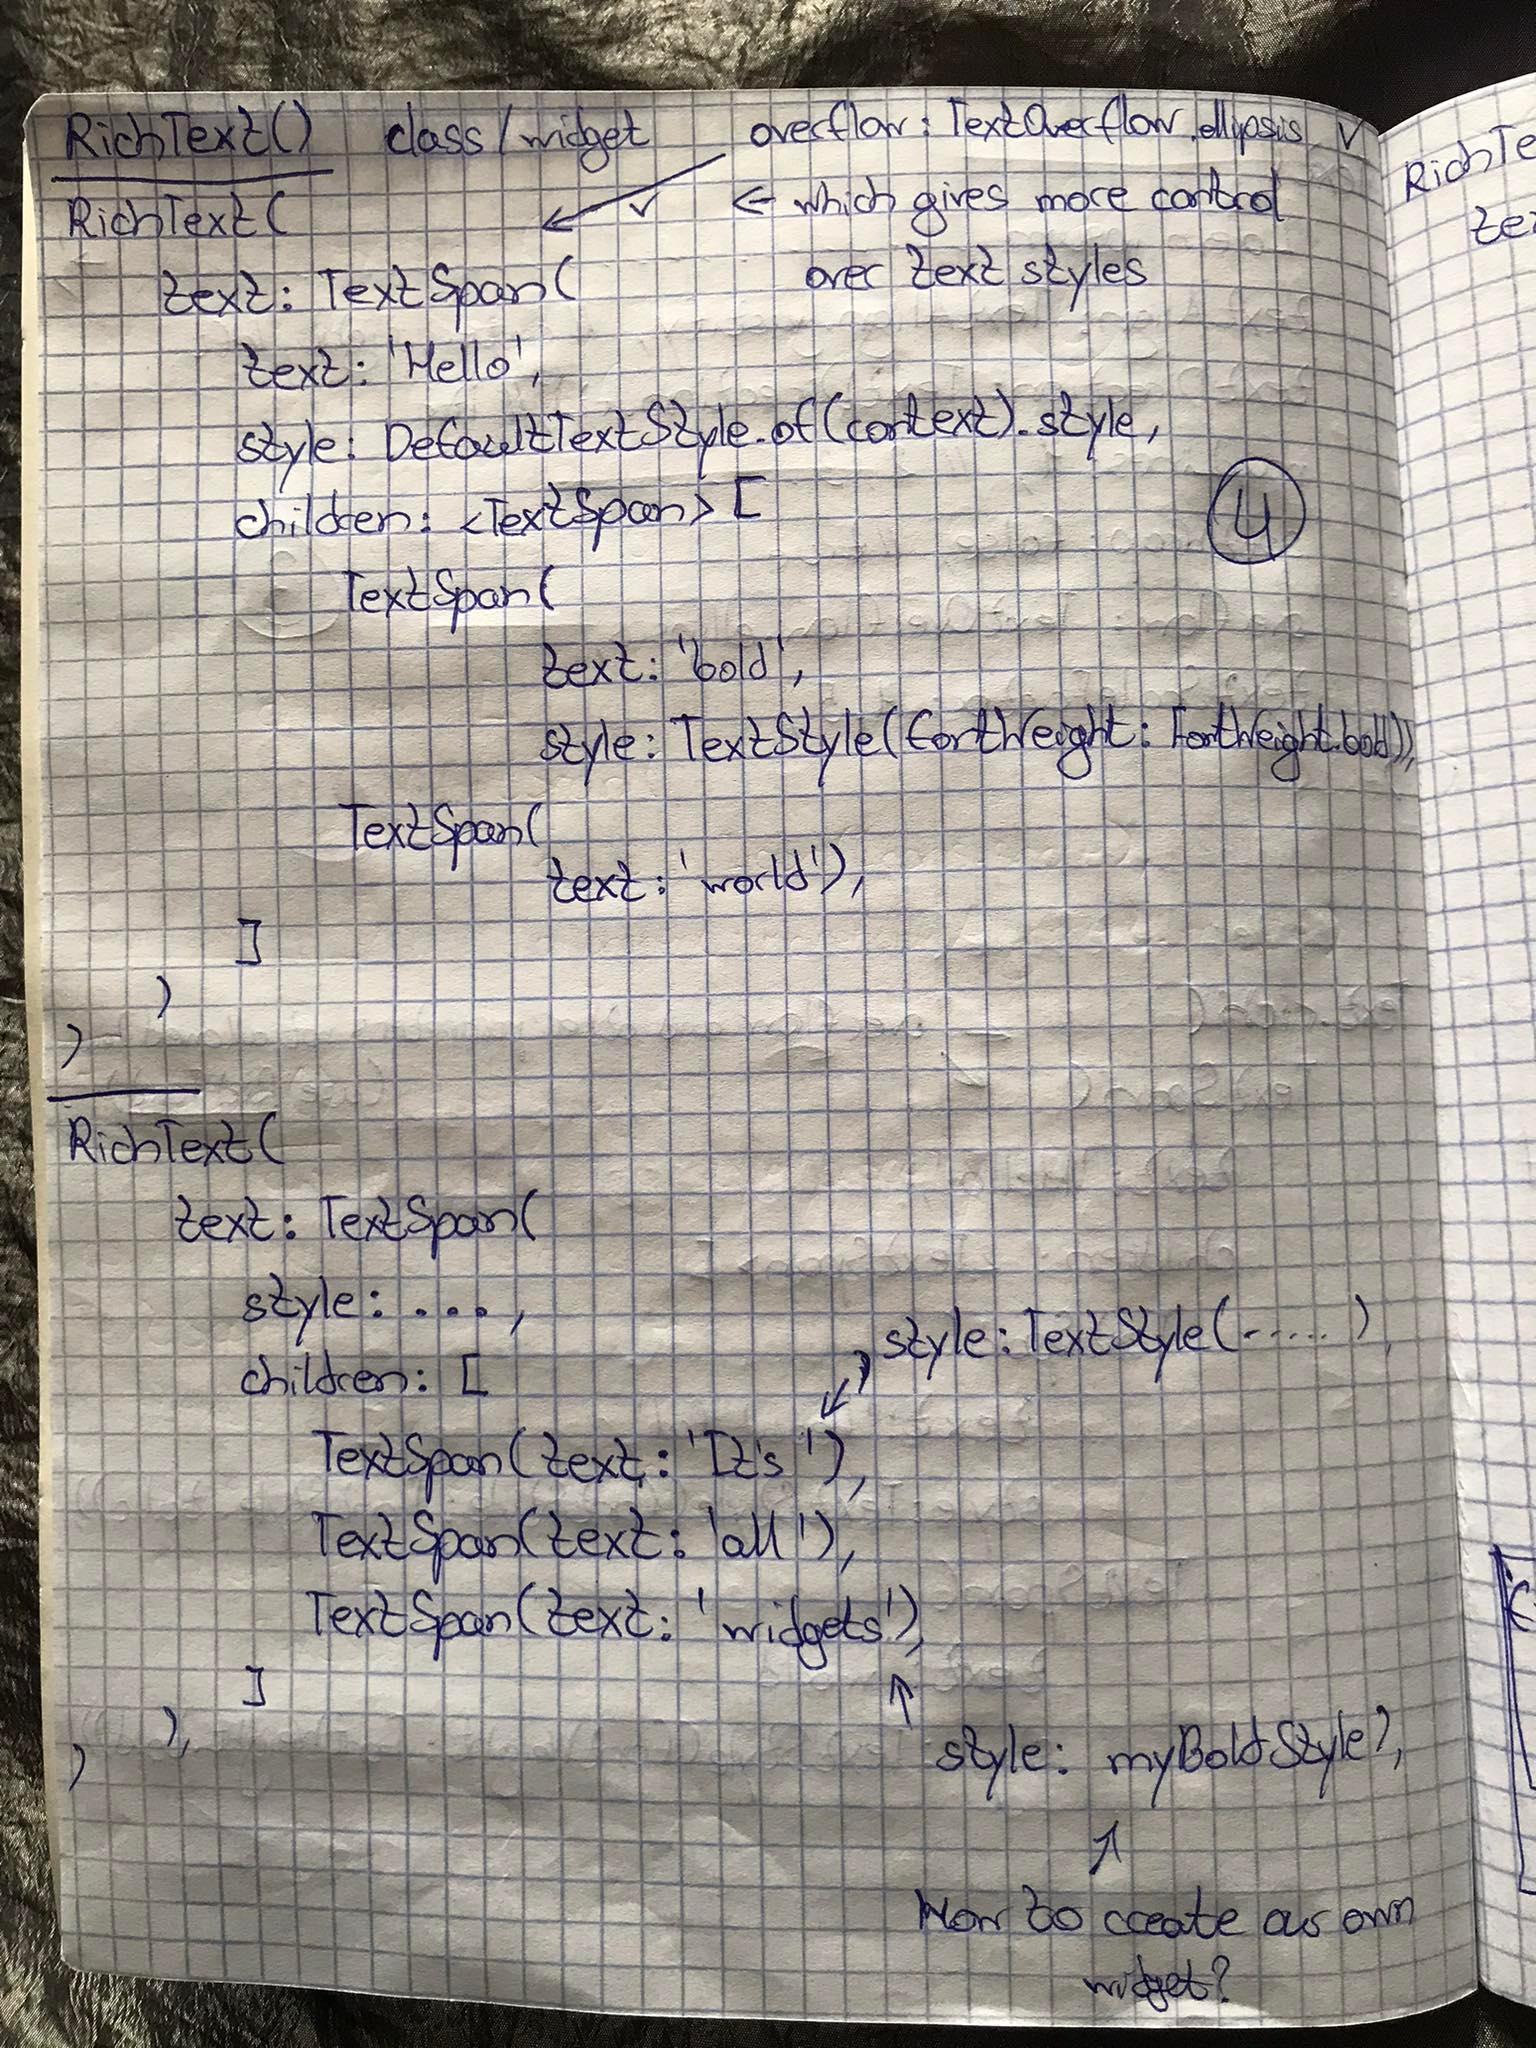 RichText() class/widget overflow: TextOverflow.ellipsis ✓
RichText( ✓ ← which gives more control
over text styles
text: TextSpan(
text: 'Hello',
style: DefaultTextStyle.of(context).style,
children: <TextSpan> [
4
TextSpan(
text: 'bold',
style: TextStyle(fontWeight: FontWeight.bold)),
TextSpan(
text: 'world'),
]
)
)
RichText(
text: TextSpan(
style: ...,
, style: TextStyle(.....),
children: [
TextSpan(text: 'It's '),
TextSpan(text: 'all '),
TextSpan(text: 'widgets'),
]
),
style: myBoldStyle),
)
How to create our own
widget?
RichTe